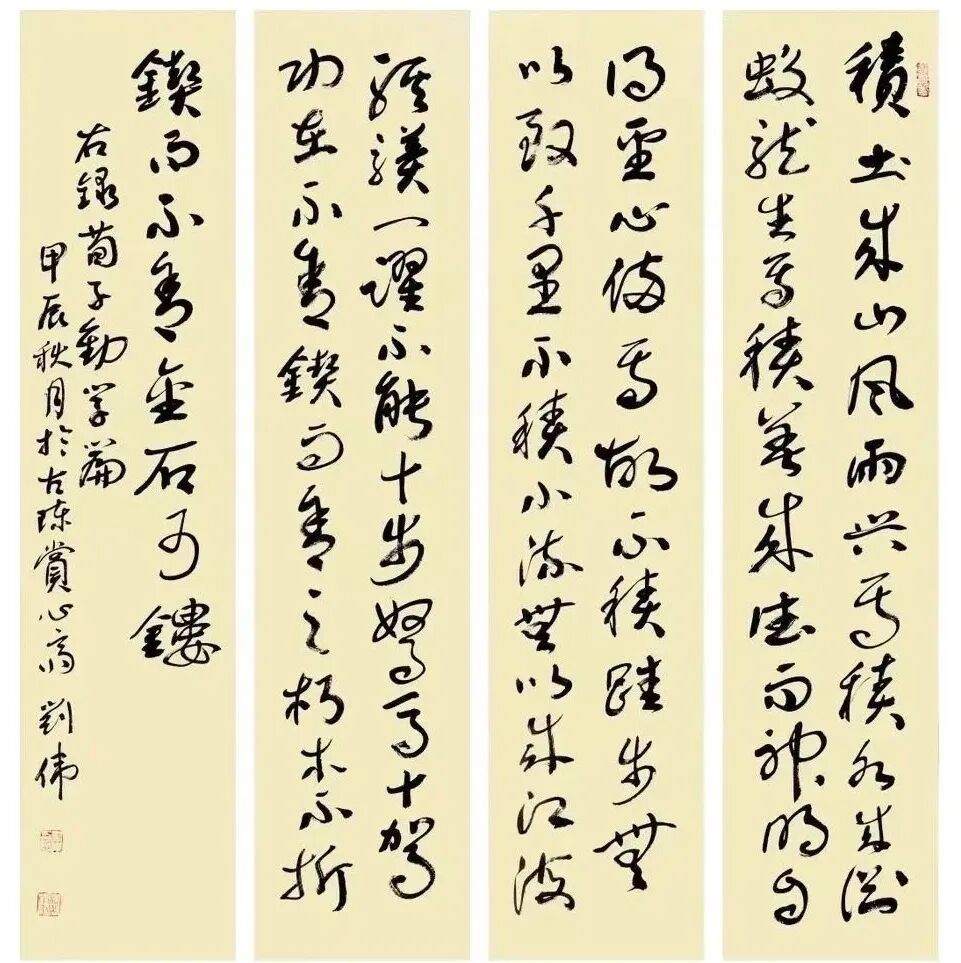 積土成山風雨興焉積水成淵
蛟龍生焉積善成德而神明自
得聖心備焉故不積跬步無
以致千里不積小流無以成江海
騏驥一躍不能十步駑馬十駕
功在不舍鍥而舍之朽木不折
鍥而不舍金石可鏤
右錄荀子勸學篇
甲辰秋月於古陳賞心齋 劉偉